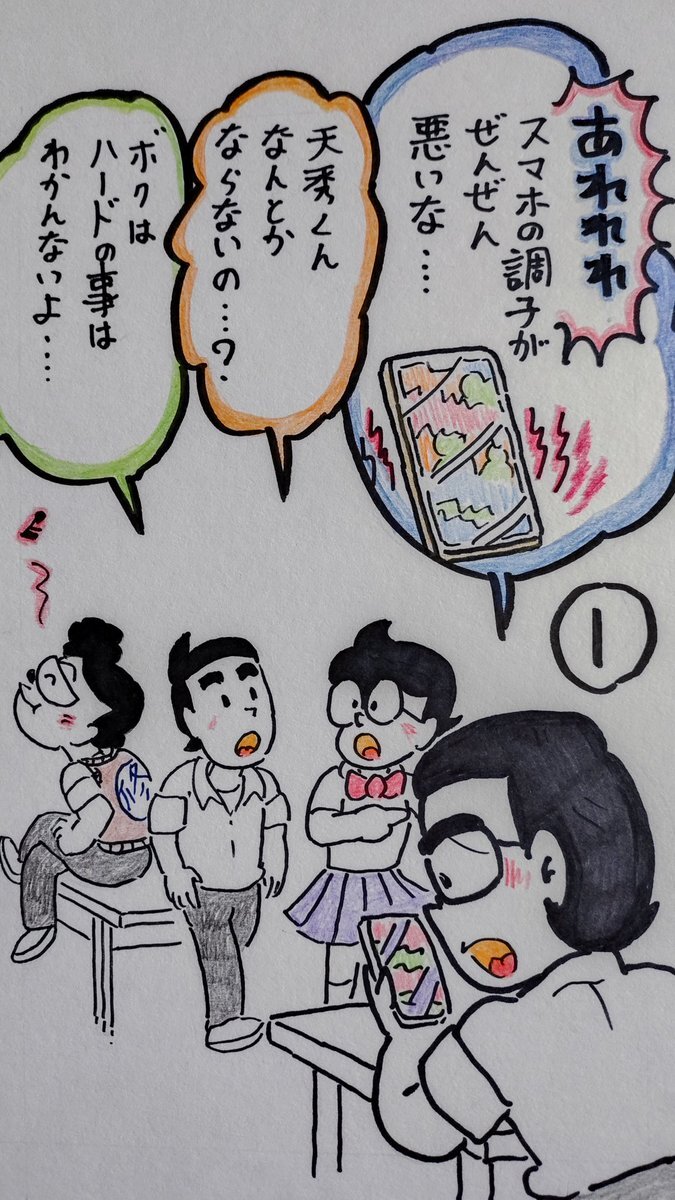 あれれれ
スマホの調子が
ぜんぜん
悪いな…
天秀くん
なんとか
ならないの…?
ボクは
ハードの事は
わかんないよ…
1